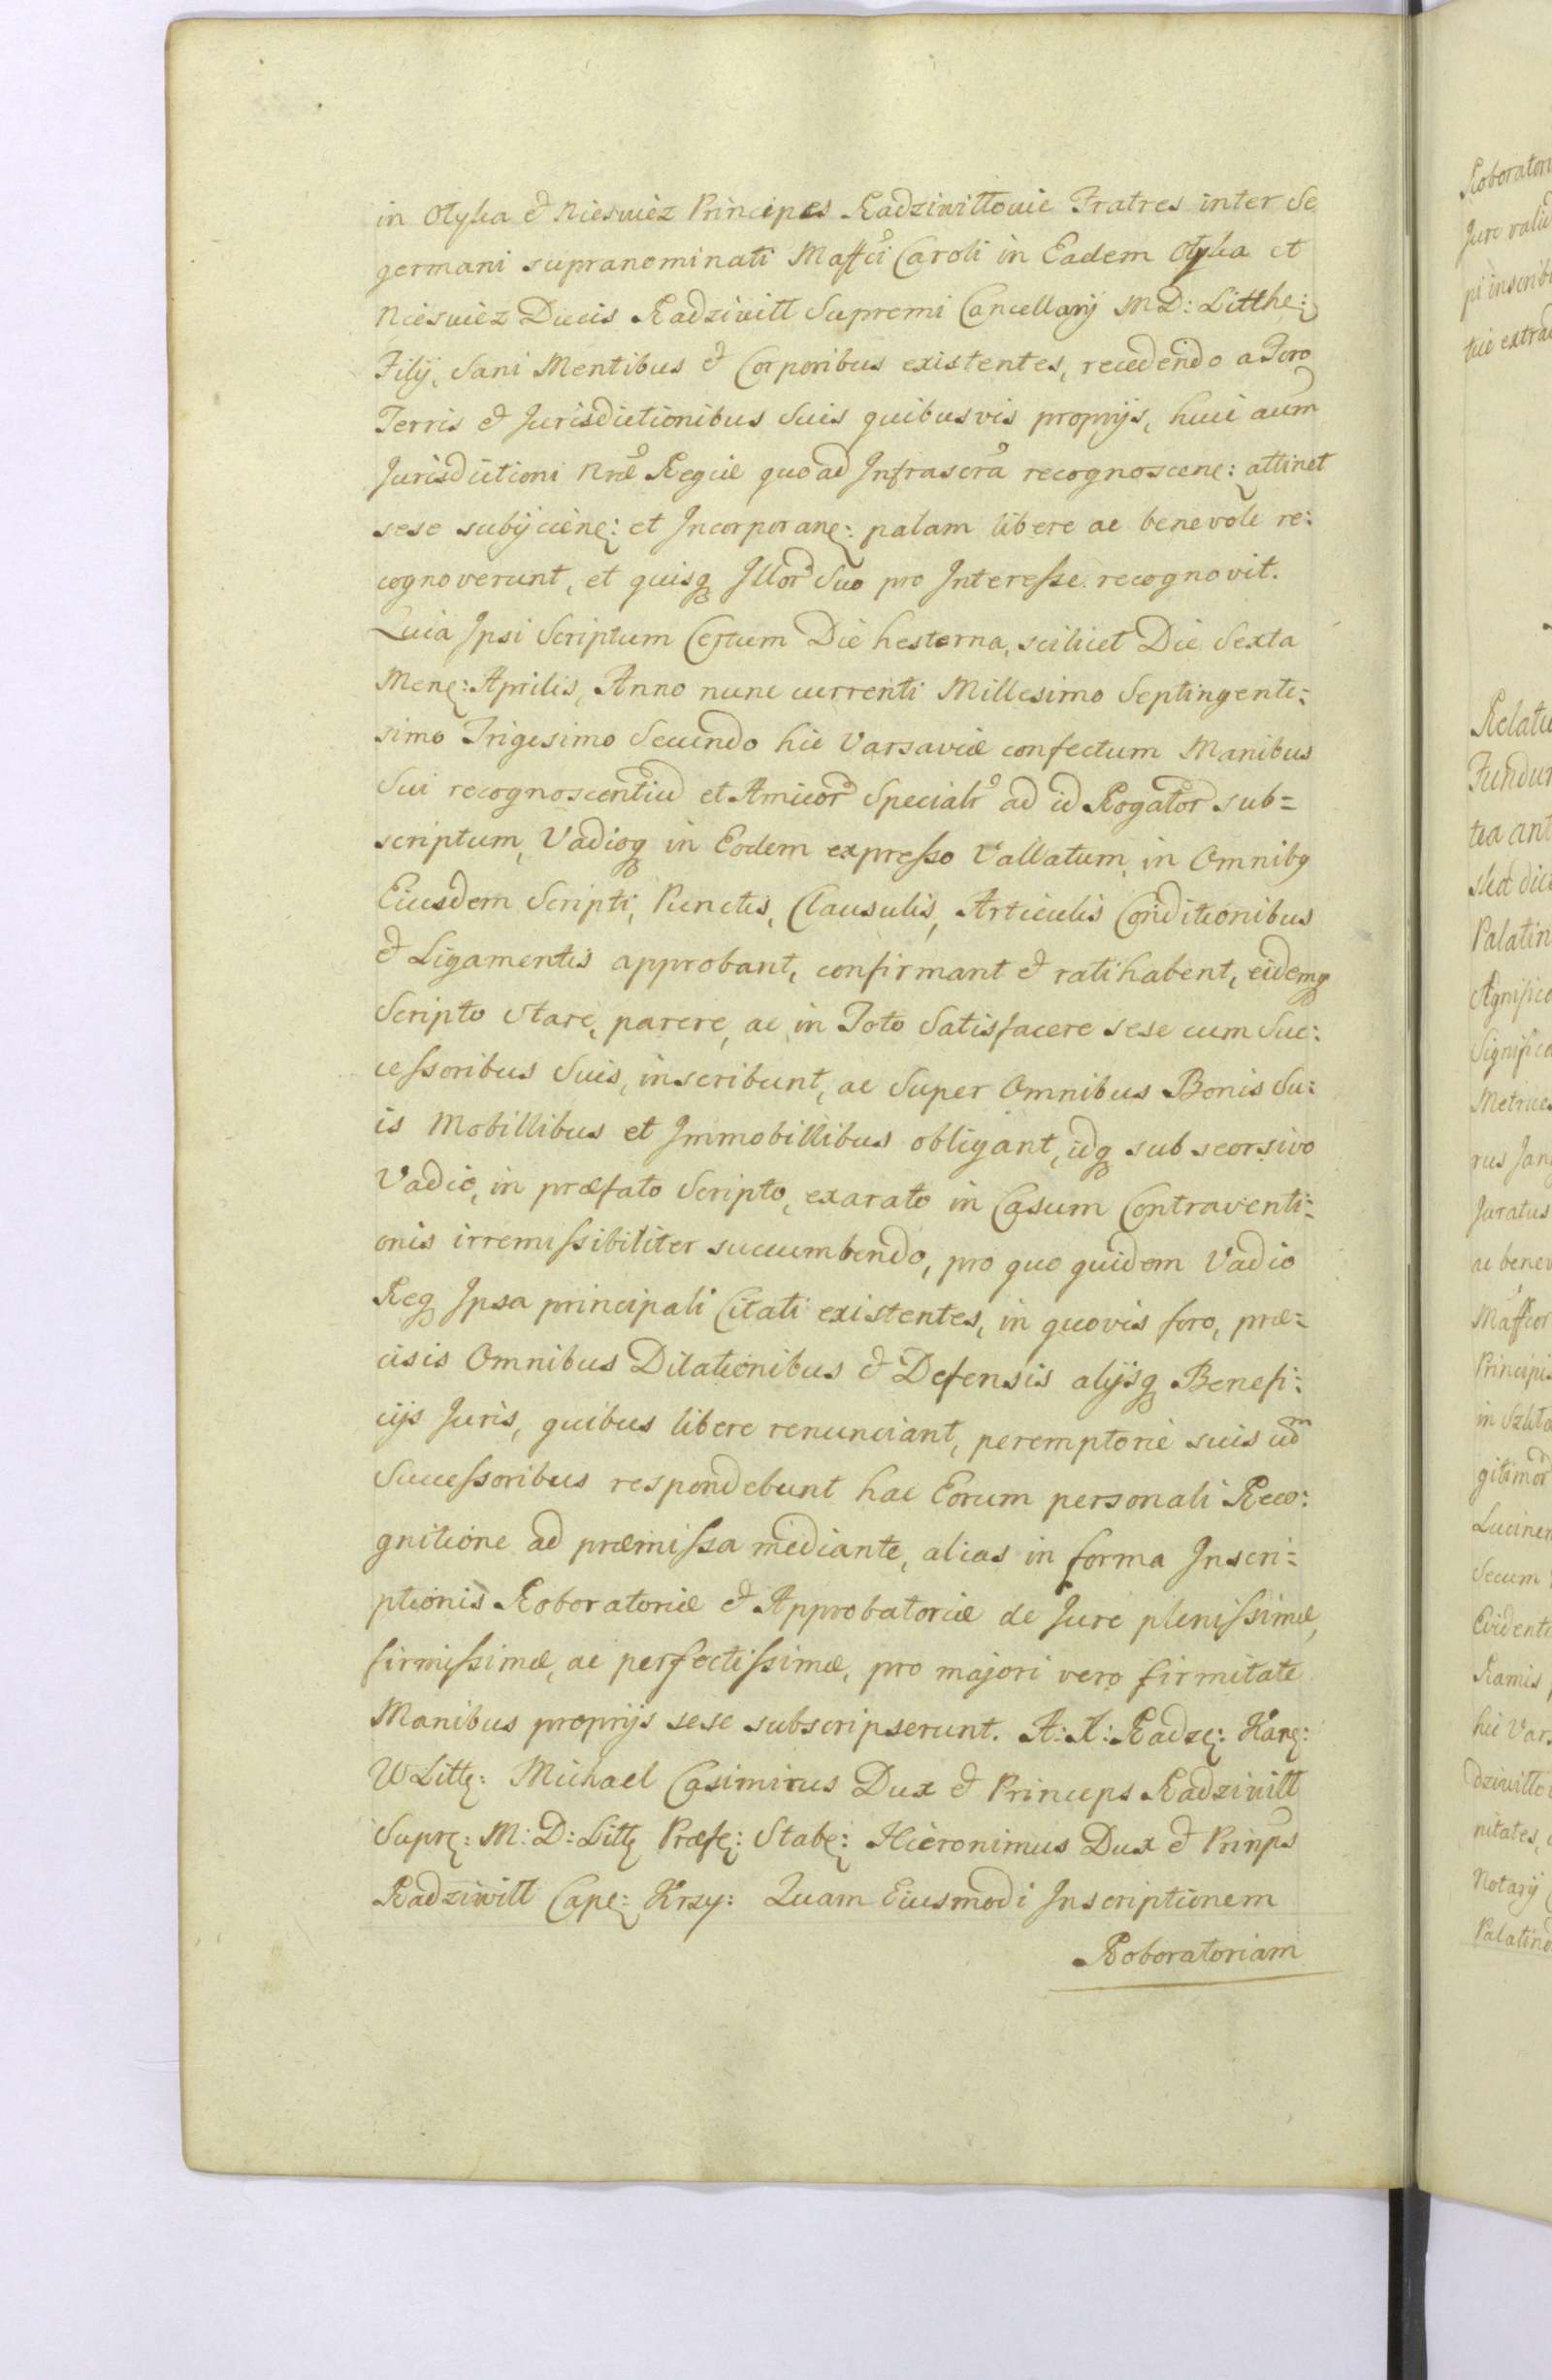 in Olyka & Nieswiez Principes Radziwiłłowie Fratres inter Se
germani supranominati Maffci Caroli in Eadem Olyka et
Nieswiez Ducis Radziwill Supremi Cancellarij M D: Litthe:
Filij, Sani Mentibus & Corporibus existentes, recedendo a Foro
Terris & Jurisdictionibus Suis quibusvis proprijs, huic aum
Jurisdictioni Nræ Regiæ quo ad Infrascra recognoscenę: attinet
sese subijcienę: et Incorporanę: palam libere ac benevole re:
cognoverunt, et quisq Illor Suo pro Interesse recognovit.
Quia Ipsi Scriptum Certum Die hesterna, scilicet Die Sexta
Menę: Aprilis, Anno nunc currenti Millesimo Septingente=
simo Trigesimo Secundo hic Varsaviæ confectum Manibus
Sui recognoscentiu et Amicor Specialr ad id Rogator sub=
scriptum, Vadioq in Eodem expresso Vallatum, in Omnibq
Eiusdem Scripti, Punctis, Clausulis, Articulis Conditionibus
& Ligamentis approbant, confirmant & ratihabent, eidemq
Scripto Stare, parere, ac in Toto Satisfacere sese cum Suc:
cessoribus Suis, inscribunt, ac Super Omnibus Bonis Su:
is Mobillibus et Immobillibus obligant, idq sub seorsivo
Vadio, in præfato Scripto, exarato in Casum Contraventi=
onis irremissibiliter succumbendo, pro quo quidem Vadio
Req Ipsa principali Citati existentes, in quovis foro, præ=
cisis Omnibus Dilationibus & Defensis alijsq Benefi:
cijs Juris, quibus libere renunciant, peremptorie suis cum
Successoribus respondebunt hac Eorum personali Reco:
gnitione ad præmissa mediante, alias in forma Inscri=
ptionis Roboratoriæ & Approbatoriæ de Jure plenissimæ,
firmissimæ, ac perfectissimæ, pro majori vero firmitate
Manibus proprijs sese subscripserunt. A: X: Radzę: Kanę:
W Littę: Michael Casimirus Dux & Princeps Radziwiłł
Suprę: M: D: Littę Præfę: Stabę: Hieronimus Dux & Prinps
Radziwiłł Capę: Krzy: Quam Eiusmodi Inscriptionem
Roboratoriam